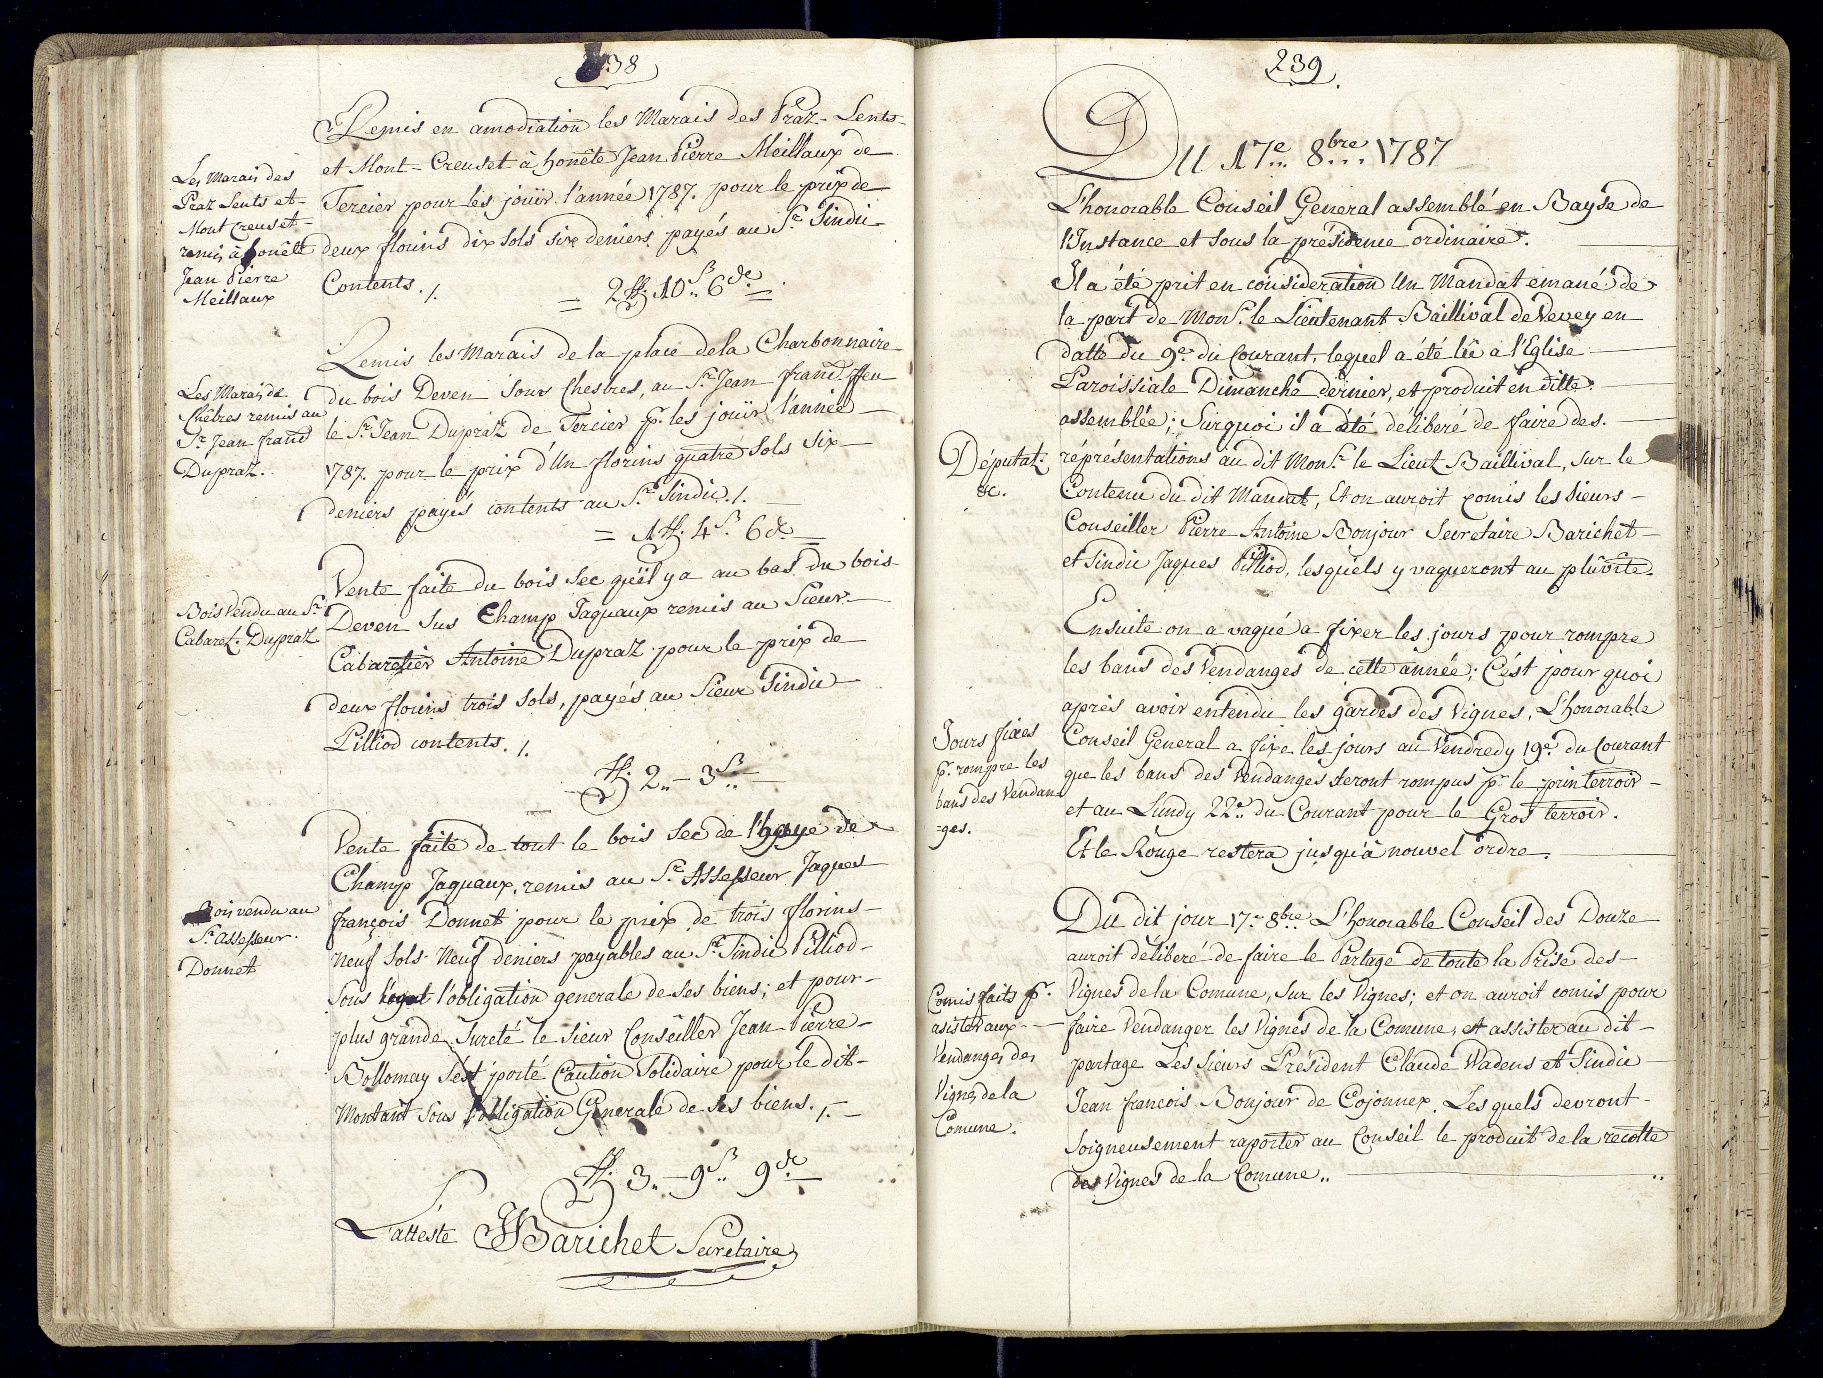 238
Remis en amodiation les Marais des Praz-Lents-
et Mont-Creuset à honête Jean Pierre Meillaux de
Tercier pour les joüir l'année 1787. pour le prix de
deux florins dix sols six deniers payés au Sr. Sindic
Contents ./.
= 2 ff. 10 ß 6 de. =
Les Marais des
Praz Lents et
Mont Creuset
remis à honête
Jean Pierre
Meillaux
Remis les Marais de la place dela Charbonnaire
du bois Deven sous Chesbres, au Sr. Jean franc. ffeu
le Sr. Jean Dupraz de Tercier pr. les joüir l'année
1787. pour le prix d'Un florins quatre sols six
deniers payés contents au Sr. Sindic ./.
= 1 ff. 4 ß. 6 de =
Les Marais de
Chêbres remis au
Sr. Jean franc
Dupraz.
Vente faite du bois sec qu'il y a au bas du bois
Deven sus Champ Jaquaux remis au Sieur
Cabaretier Antoine Dupraz pour le prix de
deux florins trois sols, payés au Sieur Sindic
Pilliod contents ./.
ff. 2 .. - 3 ß ..
Bois Vendu au Sr.
Cabaret. Dupraz
Vente faite de tout le bois sec de l'haye de
Champ Jaquaux, remis au Sr. Assesseur Jaques
françois Donnet pour le prix de trois florins
neuf sols neuf deniers payables au Sr. Sindic Pilliod
sous l'obligation generale de ses biens; et pour
plus grande Sureté le Sieur Conseiller Jean Pierre
Bollomay s'est porté Caution Solidaire pour le dit
Montant sous l'obligation Generale de ses biens ./.
ff. 3 .. - 9 ß .. 9 de.
Bois vendu au
Sr. assesseur
Donnet
L'atteste JBarichet Secretaire
239.
DU 17e. 8bre. 1787
L'honorable Conseil General assemblé en Bayse de
l'Instance et sous la présidence ordinaire.
Il a été prit en consideration Un Mandat emané de
la part de Monsr. le Lieutenant Baillival de Vevey en
datte du 9e. du Courant, lequel a été lû a l'Eglise
Paroissiale Dimanche dernier, et produit en ditte
assemblée; Surquoi il a été déliberé de faire des
réprésentations au dit Monsr. le Lieut Baillival, sur le
Contenu du dit Mandat, Et on auroit comis les Sieurs
Conseiller Pierre Antoine Bonjour Secretaire Barichet
et Sindic Jaques Pilliod, lesquels y vaqueront au plûvite.
Députat.
&c.
Ensuite on a vaqué a fixer les jours pour rompre
les bans des Vendanges de cette année; C'est pourquoi
après avoir entendu les gardes des Vignes, L'honorable
Conseil General a fixe les jours au Vendredy 19e. du Courant
que les bans des Vendanges seront rompus pr. le printerroir
et au Lundy 22e. du Courant pour le Gros terroir.
Et le Rouge restera jusqu'à nouvel ordre.
Jours fixés
pr. rompre les
bans des Vendan-
-ges.
Du dit jour 17e. 8bre. L'honorable Conseil des Douze
auroit déliberé de faire le Partage de toute la Prise des
Vignes de la Comune, sur les Vignes; et on auroit comis pour
faire Vendanger les Vignes de la Comune, et assister au dit
partage Les Sieurs Président Claude Wadens et Sindic
Jean francois Bonjour de Cojonnex. Les quels devront
Soigneusement raporter au Conseil le produit de la recolte
des Vignes de la Comune ..
Comis faits pr.
asister aux
Vendanges des
Vignes de la
Comune.